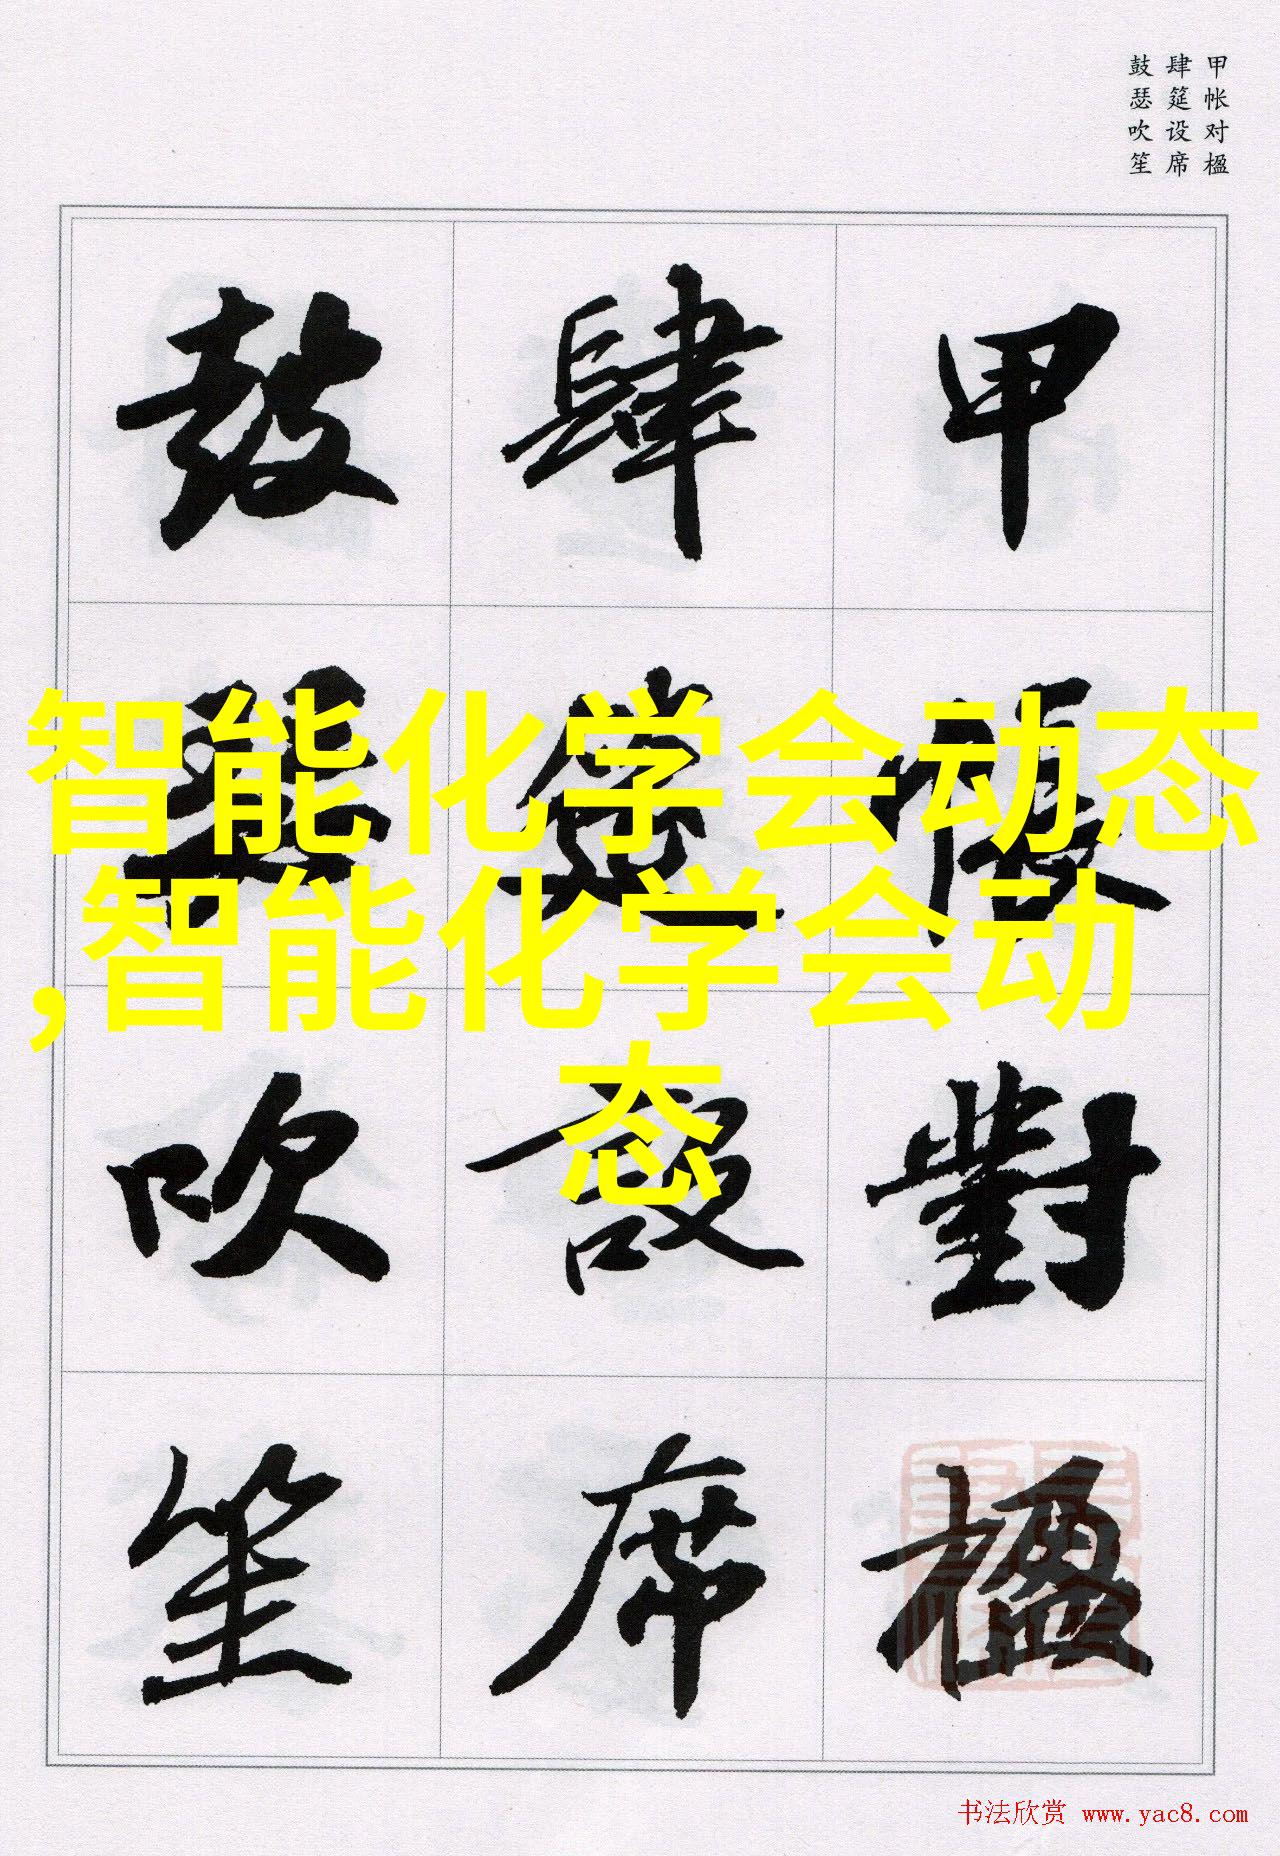 甲帐对楹
肆筵设席
鼓瑟吹笙
甲帳對楹
肆筵設席
鼓瑟吹笙
智能化学会动态
,智能化学会动
态
书法欣赏 www.yac8.com